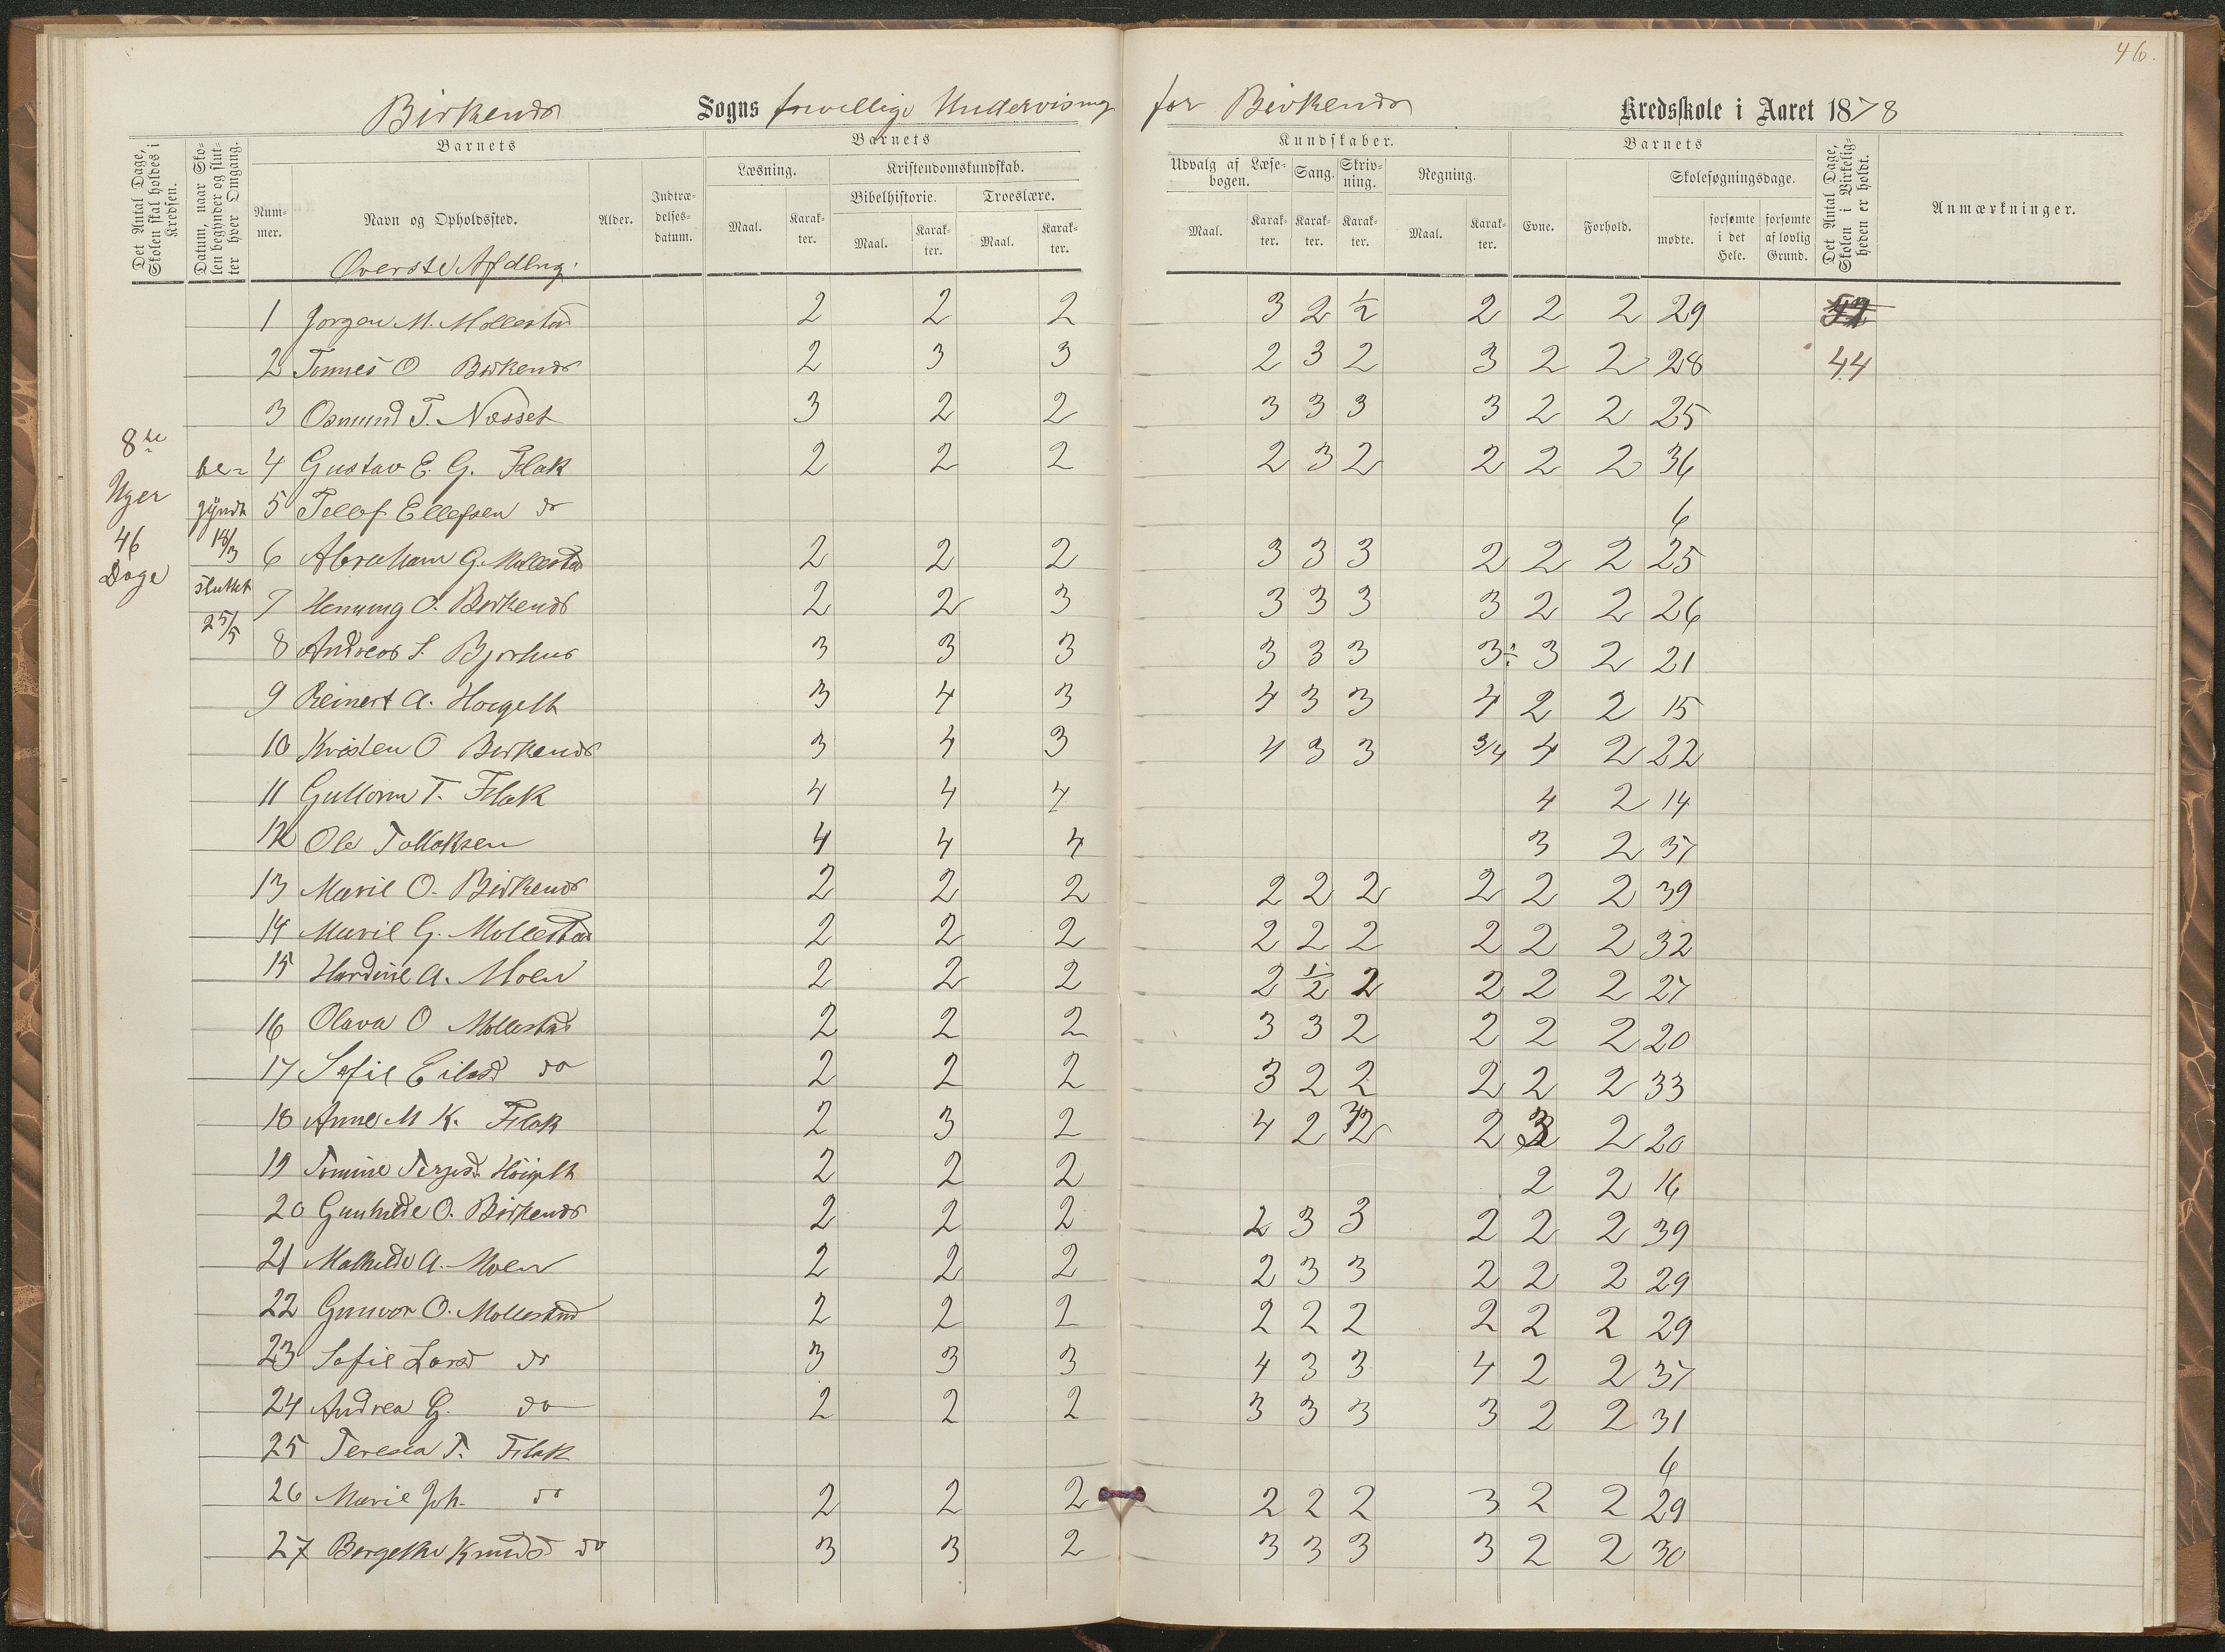 46.
Birkenæs Sogns frivillige Undervisning for Birkenæs Kredsskole i Aaret 1878
Det Antal Dage, Skolen skal holdes i Kredsen.
Datum, naar Skolen begynder og slutter hver Omgang.
Barnets
Nummer.
Navn og Opholdssted.
Alder.
Indtrædelsesdatum.
Barnets
Læsning.
Kristendomskundskab.
Bibelhistorie.
Troeslære.
Maal.
Karakter.
Maal.
Karakter.
Maal.
Karakter.
Kundskaber.
Udvalg af Læsebogen.
Sang.
Skrivning.
Regning.
Maal.
Karakter.
Karakter.
Karakter.
Maal.
Karakter.
Barnets
Evne.
Forhold.
Skolesøgningsdage.
mødte.
forsømte i det Hele.
forsømte af lovlig Grund.
Det Antal Dage, Skolen i Virkeligheden er holdt.
Anmærkninger.
Øverste Afdlng.
8de
Uger
46
Dage
be-
gyndt
18/3
sluttet
25/5
1 Jørgen M. Mollestad 2 2 2 3 2 1/2 2 2 2 29
2 Tønnes O Birkenæs 2 3 3 2 3 2 3 2 2 28 44
3 Osmund T. Næsset 3 2 2 3 3 3 3 2 2 25
4 Gustav E. G. Flak 2 2 2 2 3 2 2 2 2 36
5 Tellef Ellefsen do 6
6 Abraham G. Mollestad 2 2 2 3 3 3 2 2 2 25
7 Henning O. Birkenæs 2 2 3 3 3 3 3 2 2 26
8 Andreas S. Bjorhus 3 3 3 3 3 3 3÷ 3 2 21
9 Reinert A. Høigilt 3 4 3 4 3 3 4 2 2 15
10 Kristen O Birkenæs 3 4 3 4 3 3 3/4 4 2 22
11 Guttorm T. Flak 4 4 4 4 2 14
12 Ole Tollaksen 4 4 4 3 2 37
13 Marie O. Birkenæs 2 2 2 2 2 2 2 2 2 39
14 Marie G. Mollestad 2 2 2 2 2 2 2 2 2 32
15 Hardine A. Moen 2 2 2 2 1/2 2 2 2 2 27
16 Olava O Mollestad 2 2 2 3 3 2 2 2 2 20
17 Sofie Eilesd do 2 2 2 3 2 2 2 2 2 33
18 Anne M K. Flak 2 3 2 4 2 2 2 3 2 20
19 Tomine Terjesd. Høigilt 2 2 2 2 2 16
20 Gunhilde O. Birkenæs 2 2 2 2 3 3 2 2 2 39
21 Mathilde A. Moen 2 2 2 2 3 3 2 2 2 29
22 Gunvor O. Mollestad 2 2 2 2 2 2 2 2 2 29
23 Sofie Larsd do 3 3 3 4 3 3 4 2 2 37
24 Andrea G. do 2 2 2 3 3 3 3 2 2 31
25 Teresia T. Flak 6
26 Marie Joh. do 2 2 2 2 2 2 3 2 2 29
27 Bergethe Knudsd do 3 3 2 3 3 3 3 2 2 30